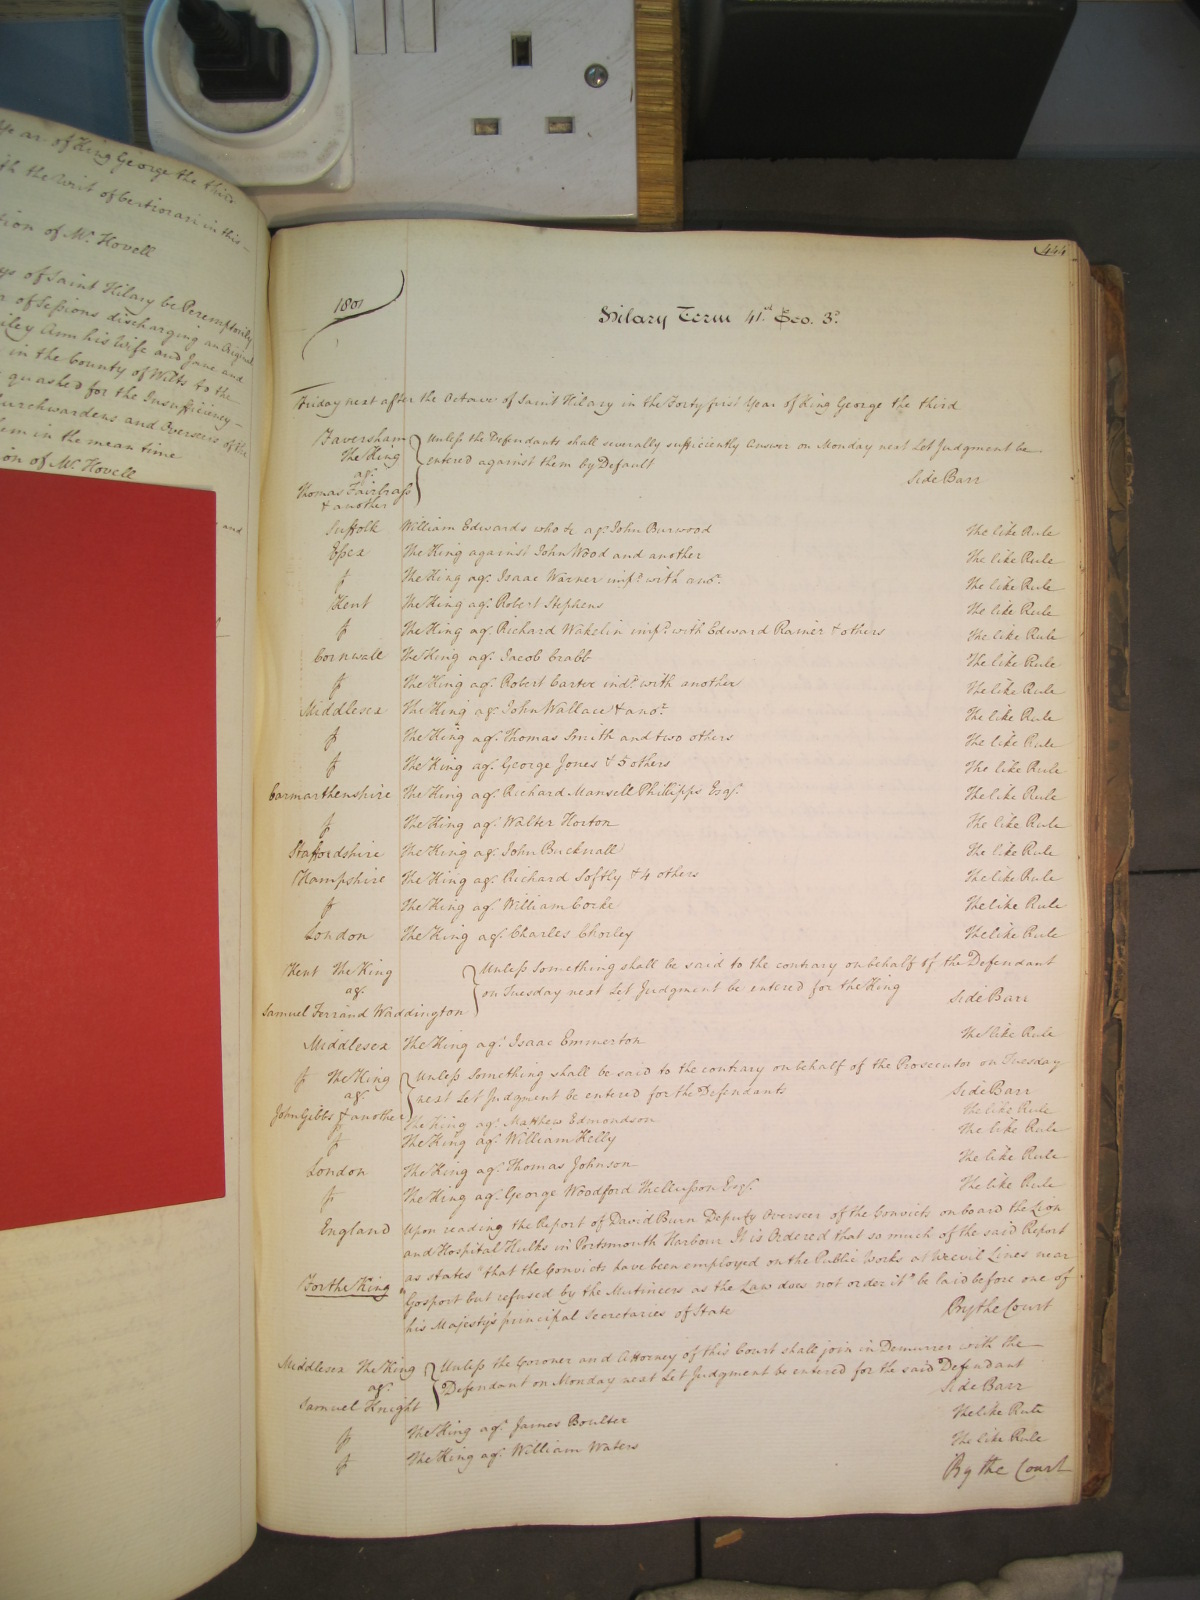 Year of King George the third
the Writ of Certiorari in this
tion of Mr. Hovell
ys of Saint Hilary be Peremptorily
of Sessions discharging an Original
iley Ann his Wife and Jane and
in the County of Wilts to the
quashed for the Insufficiency
Churchwardens and Overseers of the
them in the mean time
on of Mr. Hovell
and
444
1801
Hilary Term 41st Geo. 3d
Friday next after the Octave of Saint Hilary in the Forty first Year of King George the third
Faversham
The King
agt.
Thomas Fairbrass
& another
Unless the Defendants shall severally sufficiently Answer on Monday next Let Judgment be
entered against them by Default
Side Barr
Suffolk William Edwards who &c agt. John Burwood The like Rule
Essex The King against John Wood and another The like Rule
The King agt. Isaac Warner impd. with anor. The like Rule
Kent The King agt. Robert Stephens The like Rule
The King agt. Richard Wakelin impd. with Edward Ramer & others The like Rule
Cornwall The King agt. Jacob Crabb The like Rule
The King agt. Robert Carter indd. with another The like Rule
Middlesex The King agt. John Wallace & anor. The like Rule
The King agt. Thomas Smith and two others The like Rule
The King agt. George Jones & 5 others The like Rule
Carmarthenshire The King agt. Richard Mansell Phillipps Esqr. The like Rule
The King agt. Walter Horton The like Rule
Staffordshire The King agt. John Bucknall The like Rule
Hampshire The King agt. Richard Softly & 4 others The like Rule
The King agt. William Cocke The like Rule
London The King agt. Charles Chorley The like Rule
Kent The King
agt.
Samuel Ferrand Waddington
Unless Something shall be said to the contrary on behalf of the Defendant
on Tuesday next Let Judgment be entered for the King
Side Barr
Middlesex The King agt. Isaac Emmerton The like Rule
The King
agt.
John Gibbs & another
Unless Something shall be said to the contrary on behalf of the Prosecutor on Tuesday
next Let Judgment be entered for the Defendants
Side Barr
The King agt. Matthew Edmondson The like Rule
The King agt. William Kelly The like Rule
London The King agt. Thomas Johnson The like Rule
The King agt. George Woodford Thellusson Esqr. The like Rule
England
For the King
Upon reading the Report of David Burn Deputy Overseer of the Convicts on board the Lion
and Hospital Hulks in Portsmouth Harbour It is Ordered that so much of the said Report
as states "that the Convicts have been employed on the Public Works at Weevil Lines near
Gosport but refused by the Mutineers as the Law does not order it" be laid before one of
his Majesty's principal Secretaries of State
By the Court
Middlesex The King
agt.
Samuel Knight
Unless the Coroner and Attorney of this Court shall join in Demurrer with the
Defendant on Monday next Let Judgment be entered for the said Defendant
Side Barr
The King agt. James Boulter The like Rule
The King agt. William Waters The like Rule
By the Court